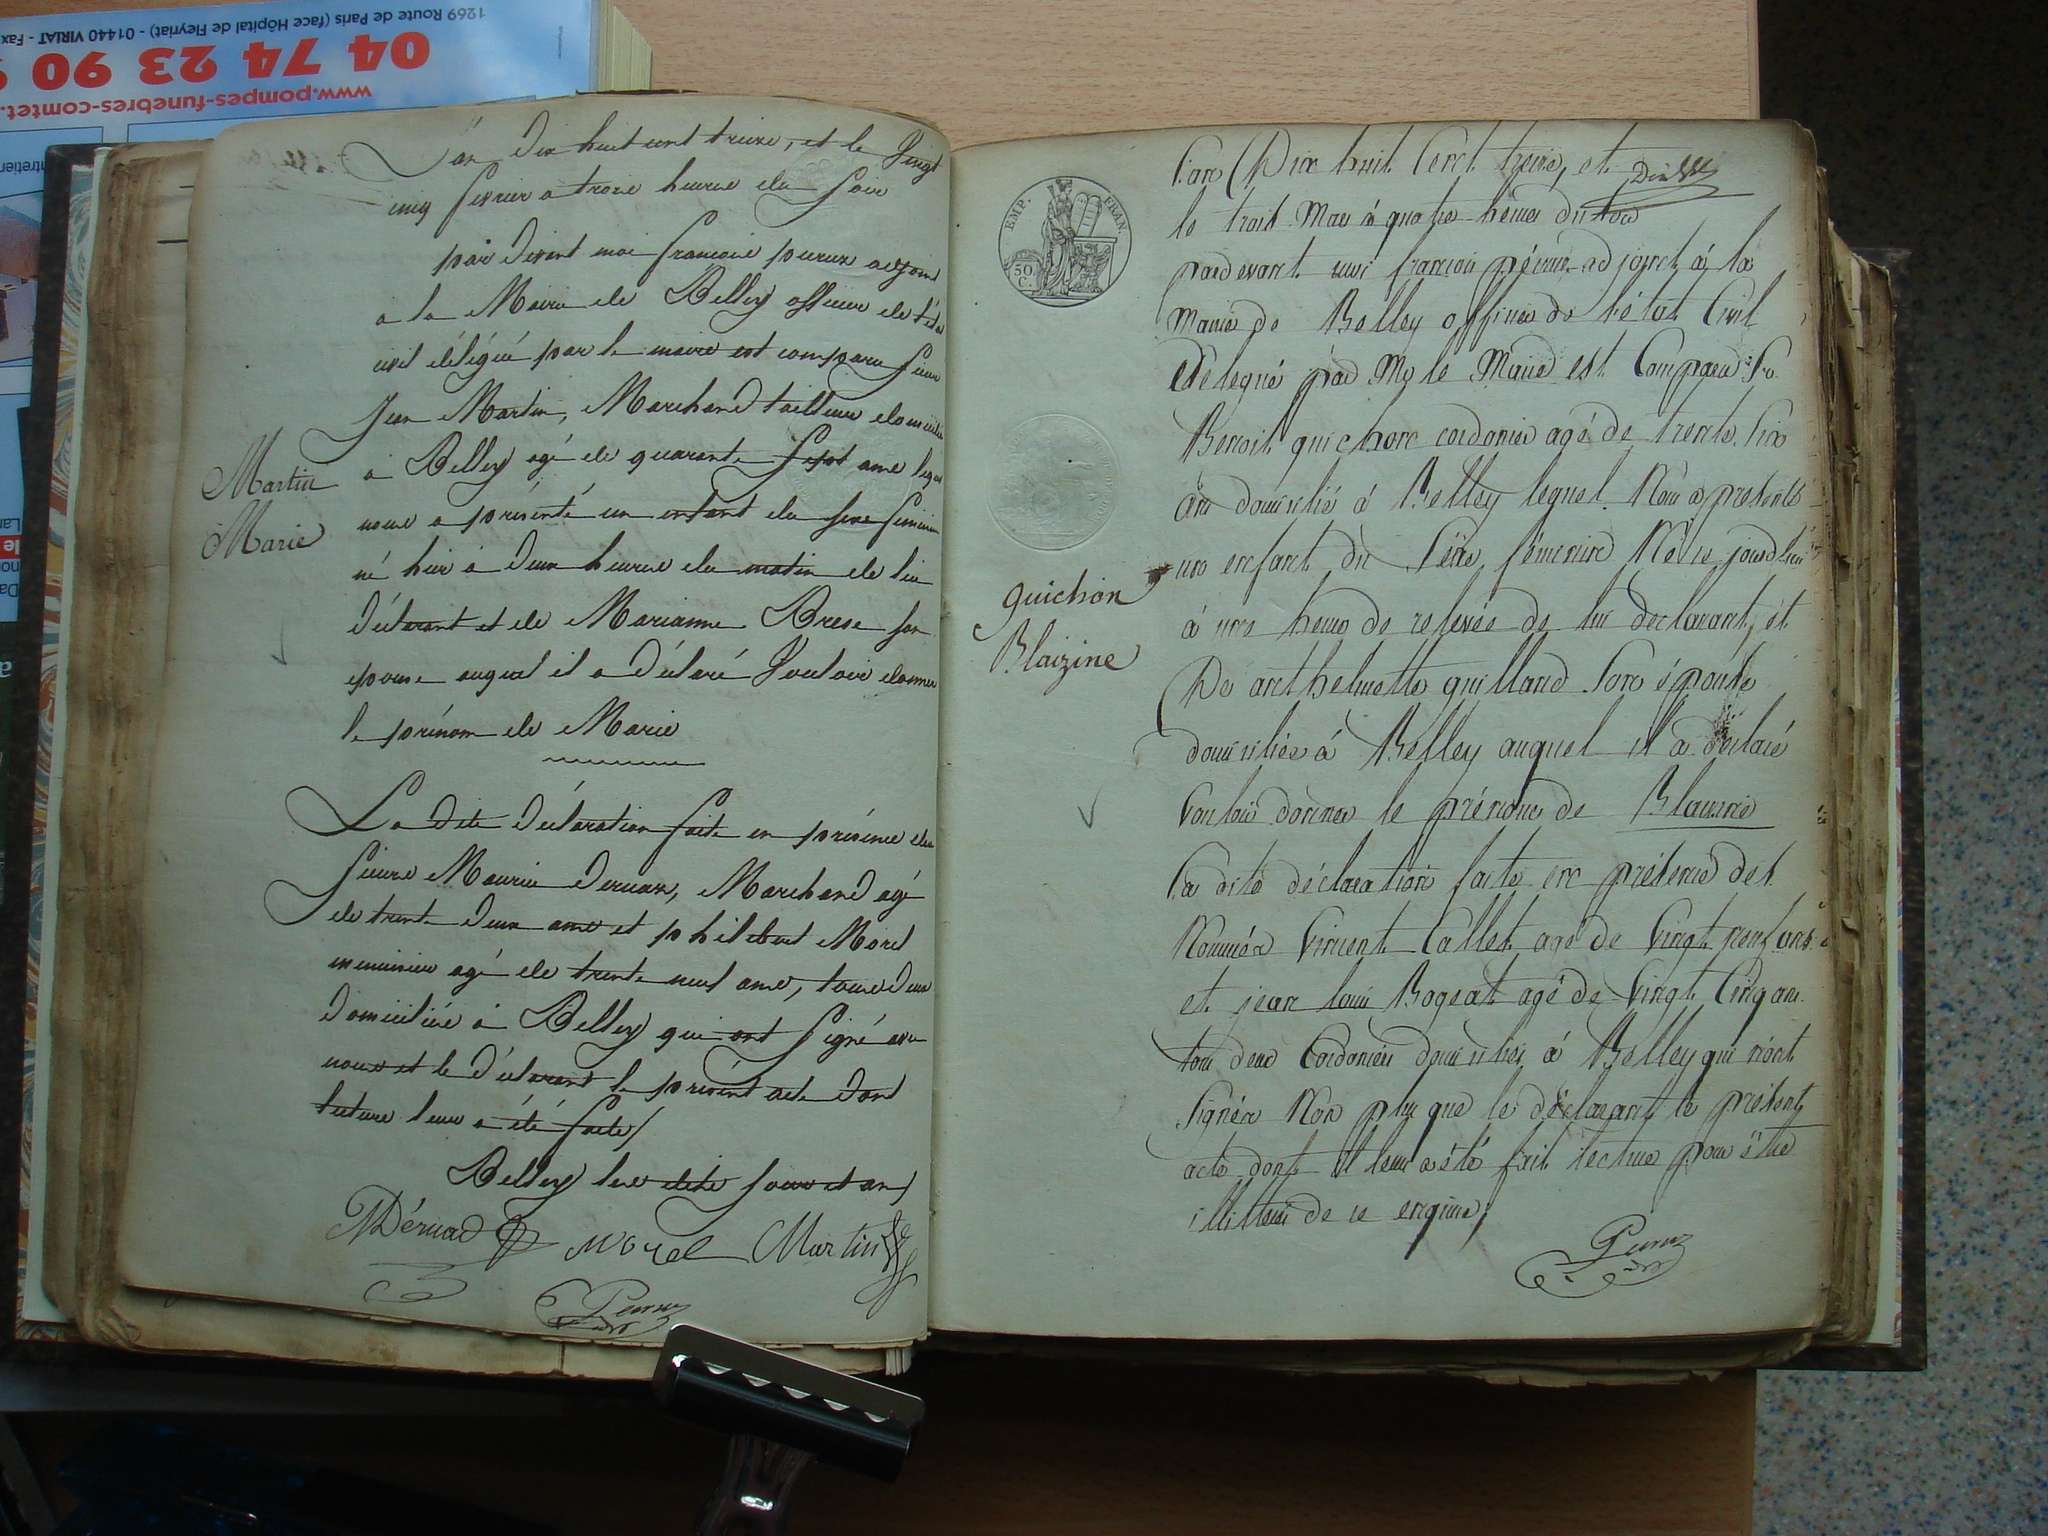 1269 Route de Paris (face Hôpital de Fleyriat) - 01440 VIRIAT - Fax
04 74 23 90 9
www.pompes-funebres-comtet.
L'an Dix huit cent treize, et le Vingt
cinq fevrier a troix heures du soir
par devant moi françois peroux adjoint
a la Mairie de Belley officier de l'éta
civil délégué par le maire est comparu sieur
Jean Martin, Marchand tailleur domicilié
a Belley agé de quarante sept ans lequel
nous a présenté un enfant du sexe feminin
né hier a deux heures du matin de lui
déclarant et de Marianne Brese son
epouse auquel il a déclaré Vouloir donner
le prénom de Marie
Martin
Marie
La dite déclaration faite en présence des
sieurs Maurice Dervax, Marchand agé
de trente deux ans et philibert Morel
menuisier agé de trente neuf ans, tous deux
domiciliés a Belley qui ont signé avec
nous et le déclarant le présent acte dont
lecture leur a été faite/
Belley les dits jour et an/
MDéruad Morel Martin
Peroux
EMP. FRAN.
50 C.
L'an Dix huit Cent treize, et
le trois Mars à quatre heures du soir
pardevant moi françois péroux adjoint à la
Mairie de Belley officier de l'état Civil
Délegué par Mr le Maire est Comparu Sr
Benoit quichon cordonier agé de trente six
ans domicilié à Belley lequel Nous a présenté
un enfant du sexe féminin Né ce jourd'hui
à une heure de relevée de lui declarant, et
De anthelmette guilland son épouse
domiciliée à Belley auquel il a déclaré
vouloir donner le prénom de Blaizine
guichon
Blaizine
La dite déclaration faite en présence des
Nommés Vincent Callet agé de Vingt neuf ans
et jean louis Bogeat agé de Vingt Cinq ans
tous deux Cordoniers domiciliés à Belley qui n'ont
signés Non plus que le déclarant le présent
acte dont il leur a été fait lecture pour être
illitterés de ce enquis/
Peroux